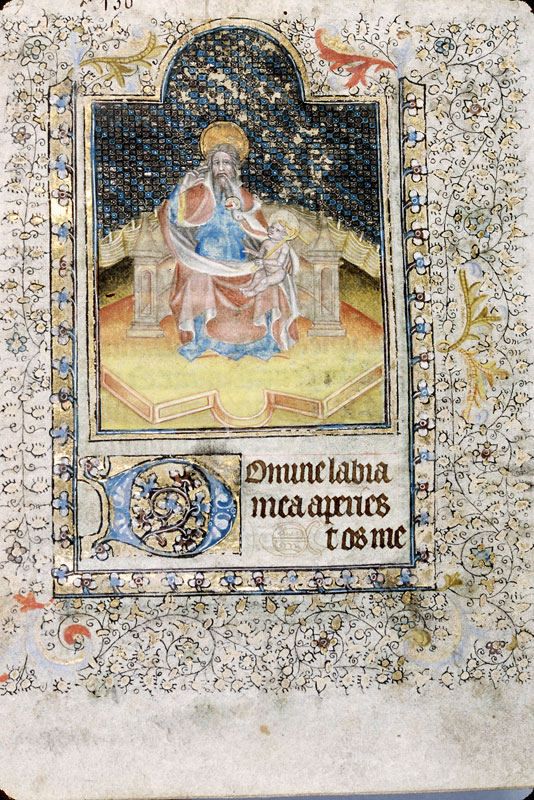 130
Domine labia
mea aperies
t os me